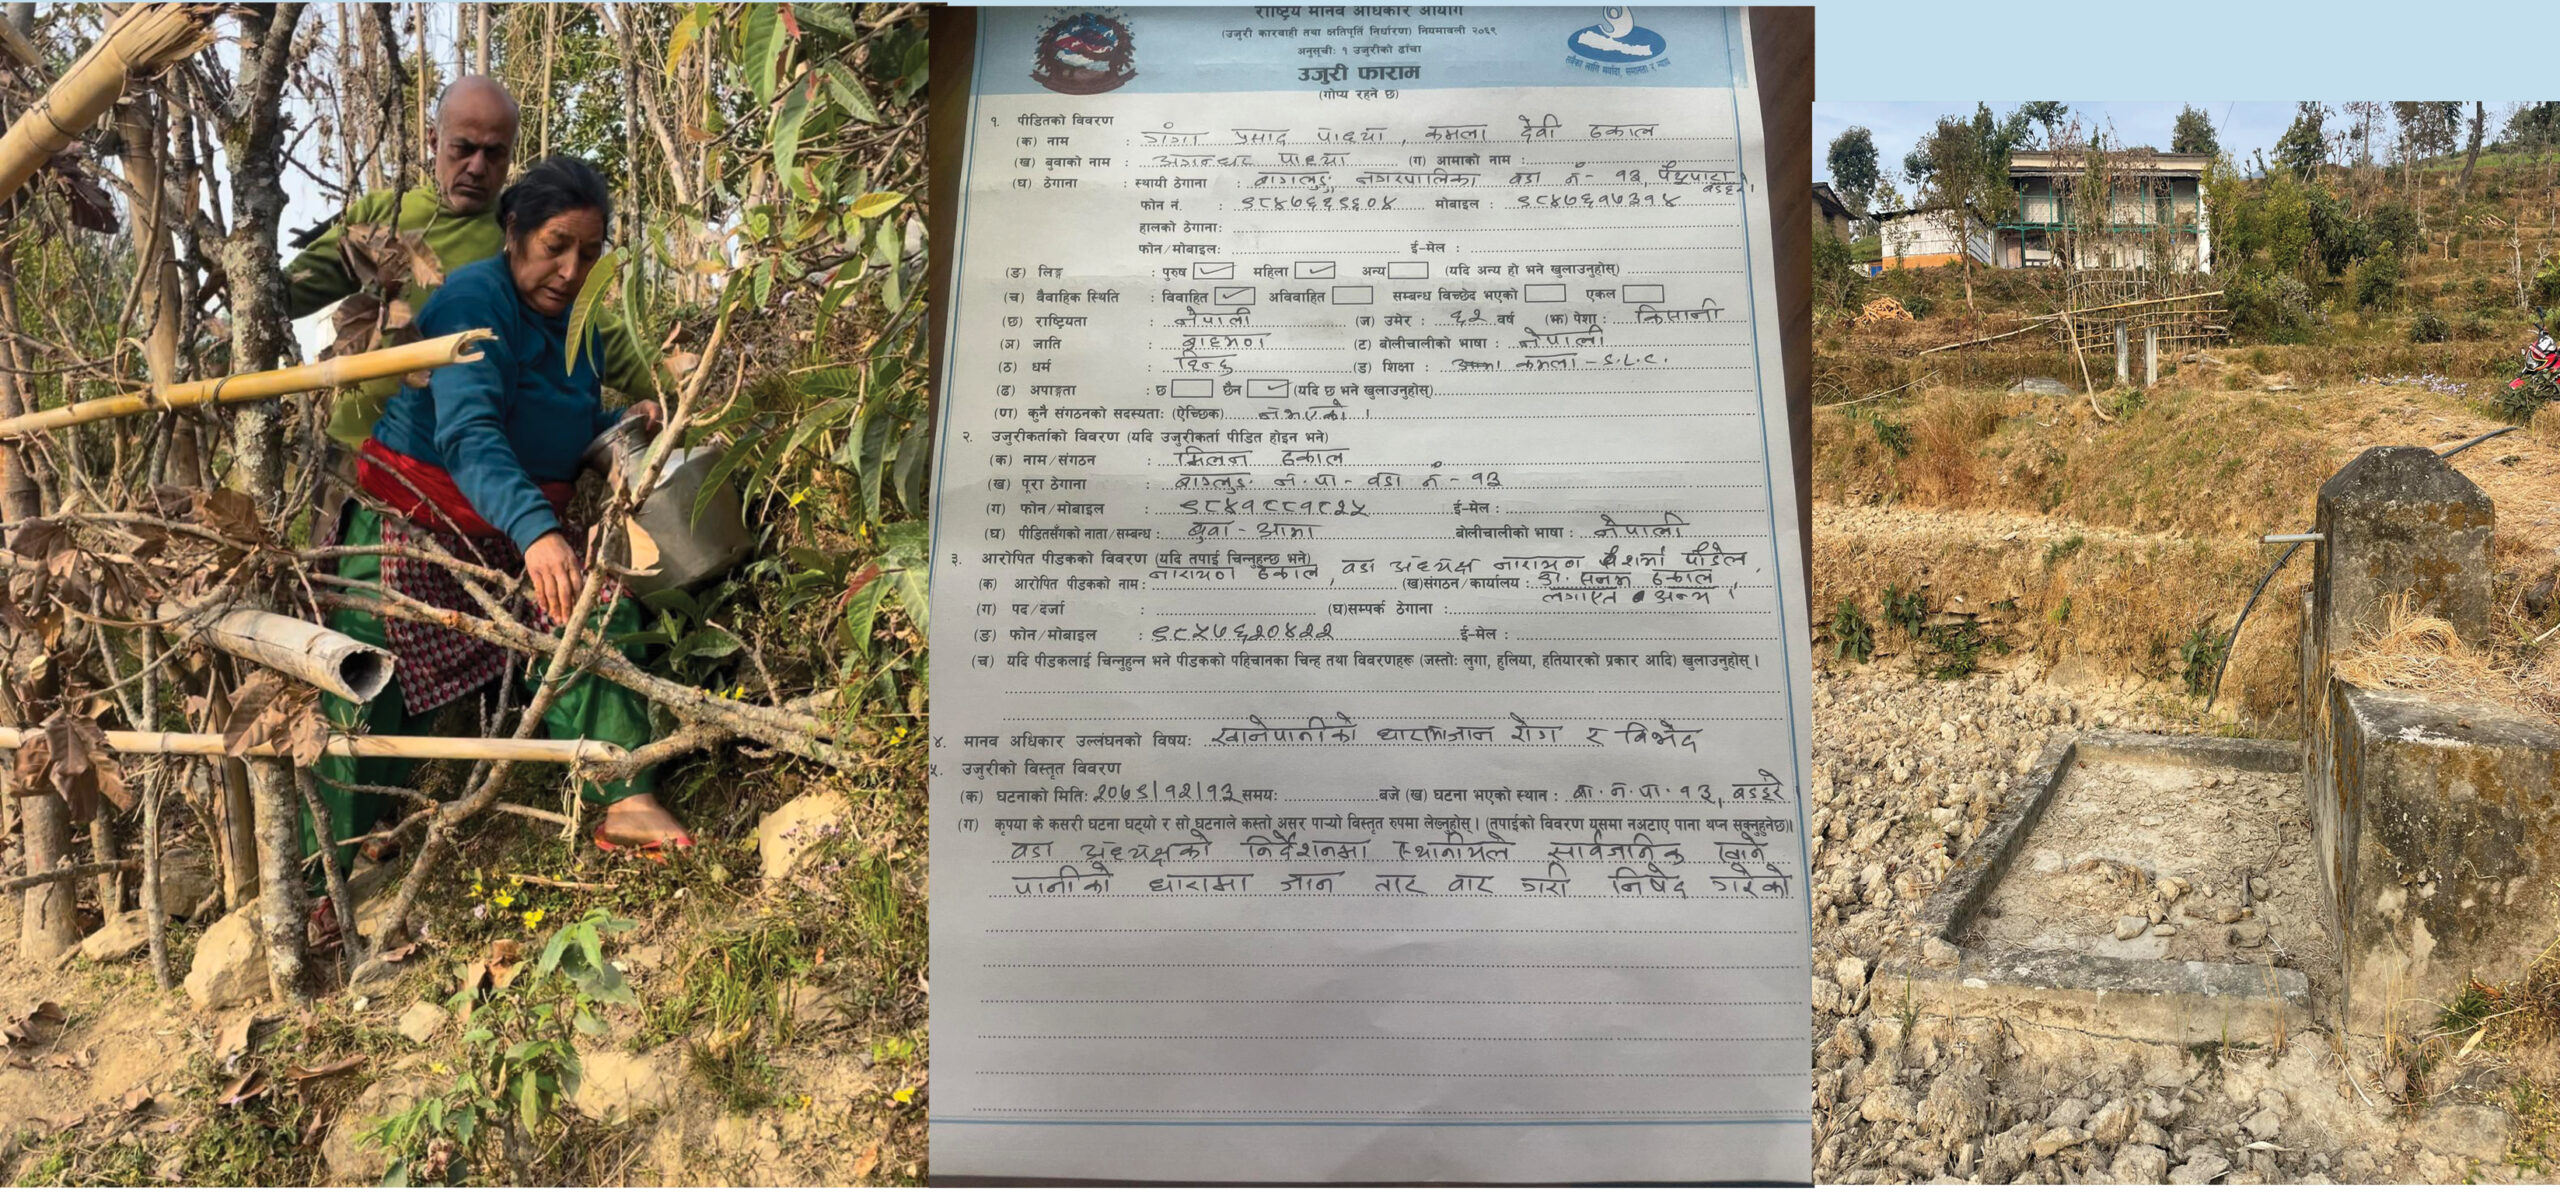 राष्ट्रिय मानव अधिकार आयोग
(उजुरी कारवाही तथा क्षतिपूर्ति निर्धारण) नियमावली २०६९
अनुसूची: १ उजुरीको ढाँचा
उजुरी फाराम
(गोप्य रहने छ)
सबैका लागि मर्यादा, समानता र न्याय
१. पीडितको विवरण
(क) नाम : गंगा प्रसाद पाध्या, कमला देवी ढकाल
(ख) बुवाको नाम : पाध्या (ग) आमाको नाम :
(घ) ठेगाना : स्थायी ठेगाना : बागलुङ नगरपालिका वडा नं - १३, पैयुपाटा
फोन नं. : ९८४७६२९६०४ मोबाइल : ९८४७६१७३१४
हालको ठेगाना:
फोन/मोबाइल: ई-मेल :
(ङ) लिङ्ग : पुरुष महिला अन्य (यदि अन्य हो भने खुलाउनुहोस्)
(च) वैवाहिक स्थिति : विवाहित अविवाहित सम्बन्ध विच्छेद भएको एकल
(छ) राष्ट्रियता : नेपाली (ज) उमेर : ६२ वर्ष (झ) पेशा : किसानी
(ञ) जाति : ब्राहमण (ट) बोलीचालीको भाषा : नेपाली
(ठ) धर्म : हिन्दु (ड) शिक्षा : कमला - S.L.C.
(ढ) अपाङ्गता : छ छैन (यदि छ भने खुलाउनुहोस्)
(ण) कुनै संगठनको सदस्यता: (ऐच्छिक) नभएको।
२. उजुरीकर्ताको विवरण (यदि उजुरीकर्ता पीडित होइन भने)
(क) नाम/संगठन : मिलन ढकाल
(ख) पूरा ठेगाना : बागलुङ न.पा - वडा नं - १३
(ग) फोन/मोबाइल : ९८४१८८१८२५ ई-मेल :
(घ) पीडितसँगको नाता/सम्बन्ध : बुवा - आमा बोलीचालीको भाषा : नेपाली
३. आरोपित पीडकको विवरण (यदि तपाई चिन्नुहुन्छ भने)
(क) आरोपित पीडकको नाम: नारायण ढकाल, वडा अध्यक्ष नारायण शर्मा पौडेल,
(ख)संगठन/कार्यालय : सनम ढकाल,
लगाएत अन्य।
(ग) पद/दर्जा : (घ)सम्पर्क ठेगाना :
(ङ) फोन/मोबाइल : ९८५७६२०४२२ ई-मेल :
(च) यदि पीडकलाई चिन्नुहुन्न भने पीडकको पहिचानका चिन्ह तथा विवरणहरू (जस्तो: लुगा, हुलिया, हतियारको प्रकार आदि) खुलाउनुहोस्।
४. मानव अधिकार उल्लंघनको विषय: खानेपानीको धारामजान रोग र विभेद
५. उजुरीको विस्तृत विवरण
(क) घटनाको मिति: २०७९/१२/१३ समय: बजे (ख) घटना भएको स्थान : बा.न.पा. १३,
(ग) कृपया के कसरी घटना घट्यो र सो घटनाले कस्तो असर पार्‍यो विस्तृत रुपमा लेख्नुहोस्। (तपाईको विवरण यसमा नअटाए पाना थप्न सक्नुहुनेछ)।
वडा अध्यक्षको निर्देशनमा स्थानीयले सार्वजानिक खाने
पानीको धारामा जान तार वार गरी निषेद गरेको